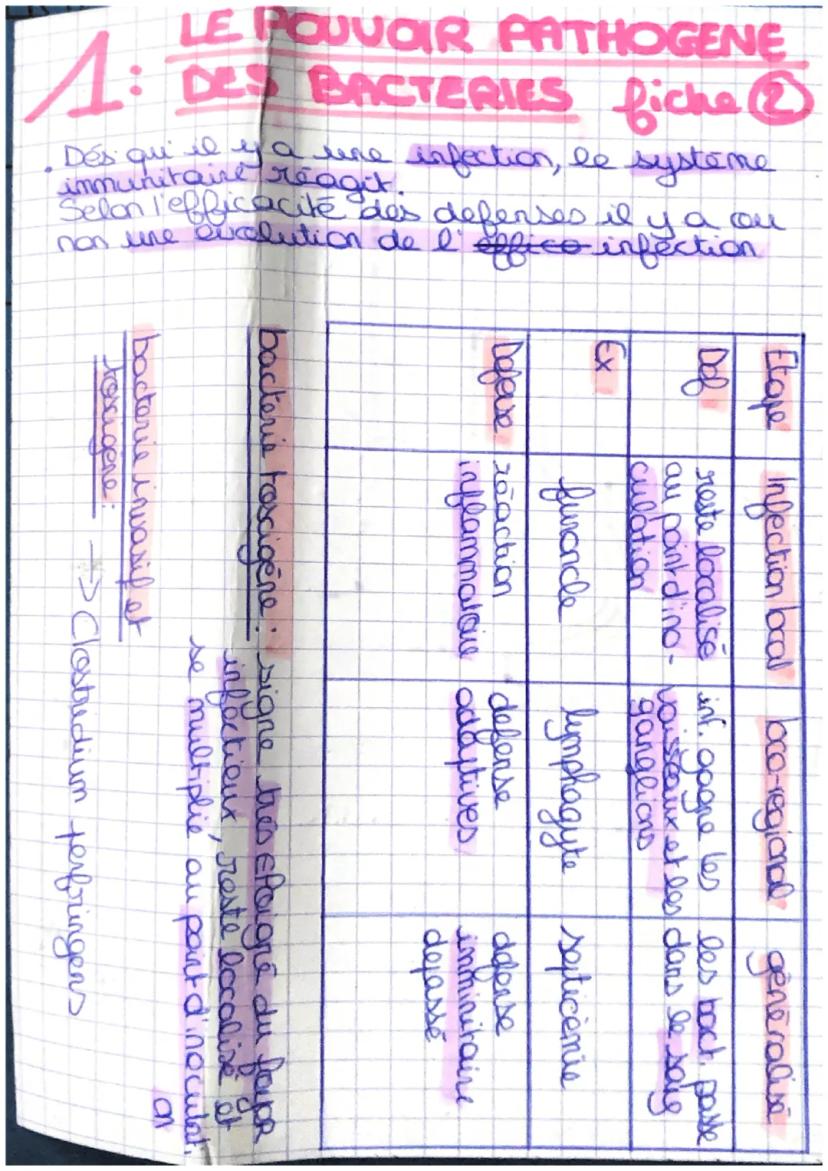 1: LE POUVOIR PATHOGENE
DES BACTERIES fiche ②
. Dés qui il y a une infection, le système
immunitaire réagit.
Selon l'efficacité des defenses il y a ou
non une évolution de l' effica infection
Etape Infection local loco-regional généralisé
Def reste localisé au point d'ino-culation inf. gagne les vaisseaux et les ganglions les bact. passe dans le sang
Ex furoncle lymphagyte septicémie
Defense réaction inflammatoire defense adaptives defense imminitaire depassé
bacterie toxigène : signe très éloigné du foyer
infectieux, reste localisé et
se multiplie au point d'inoculat.
on
bacterie invasif et
toxigene :
-> Clostridium perfringens